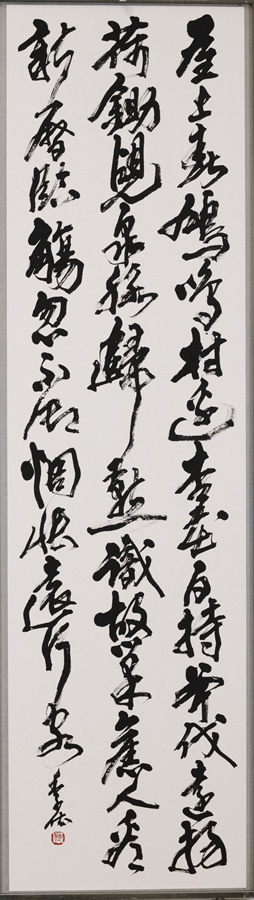 屋上春鳩鳴村邊杏花白持斧伐遠揚
荷鋤覘泉脈歸燕識故巣舊人看
新暦臨觴忽不御惆悵遠行客